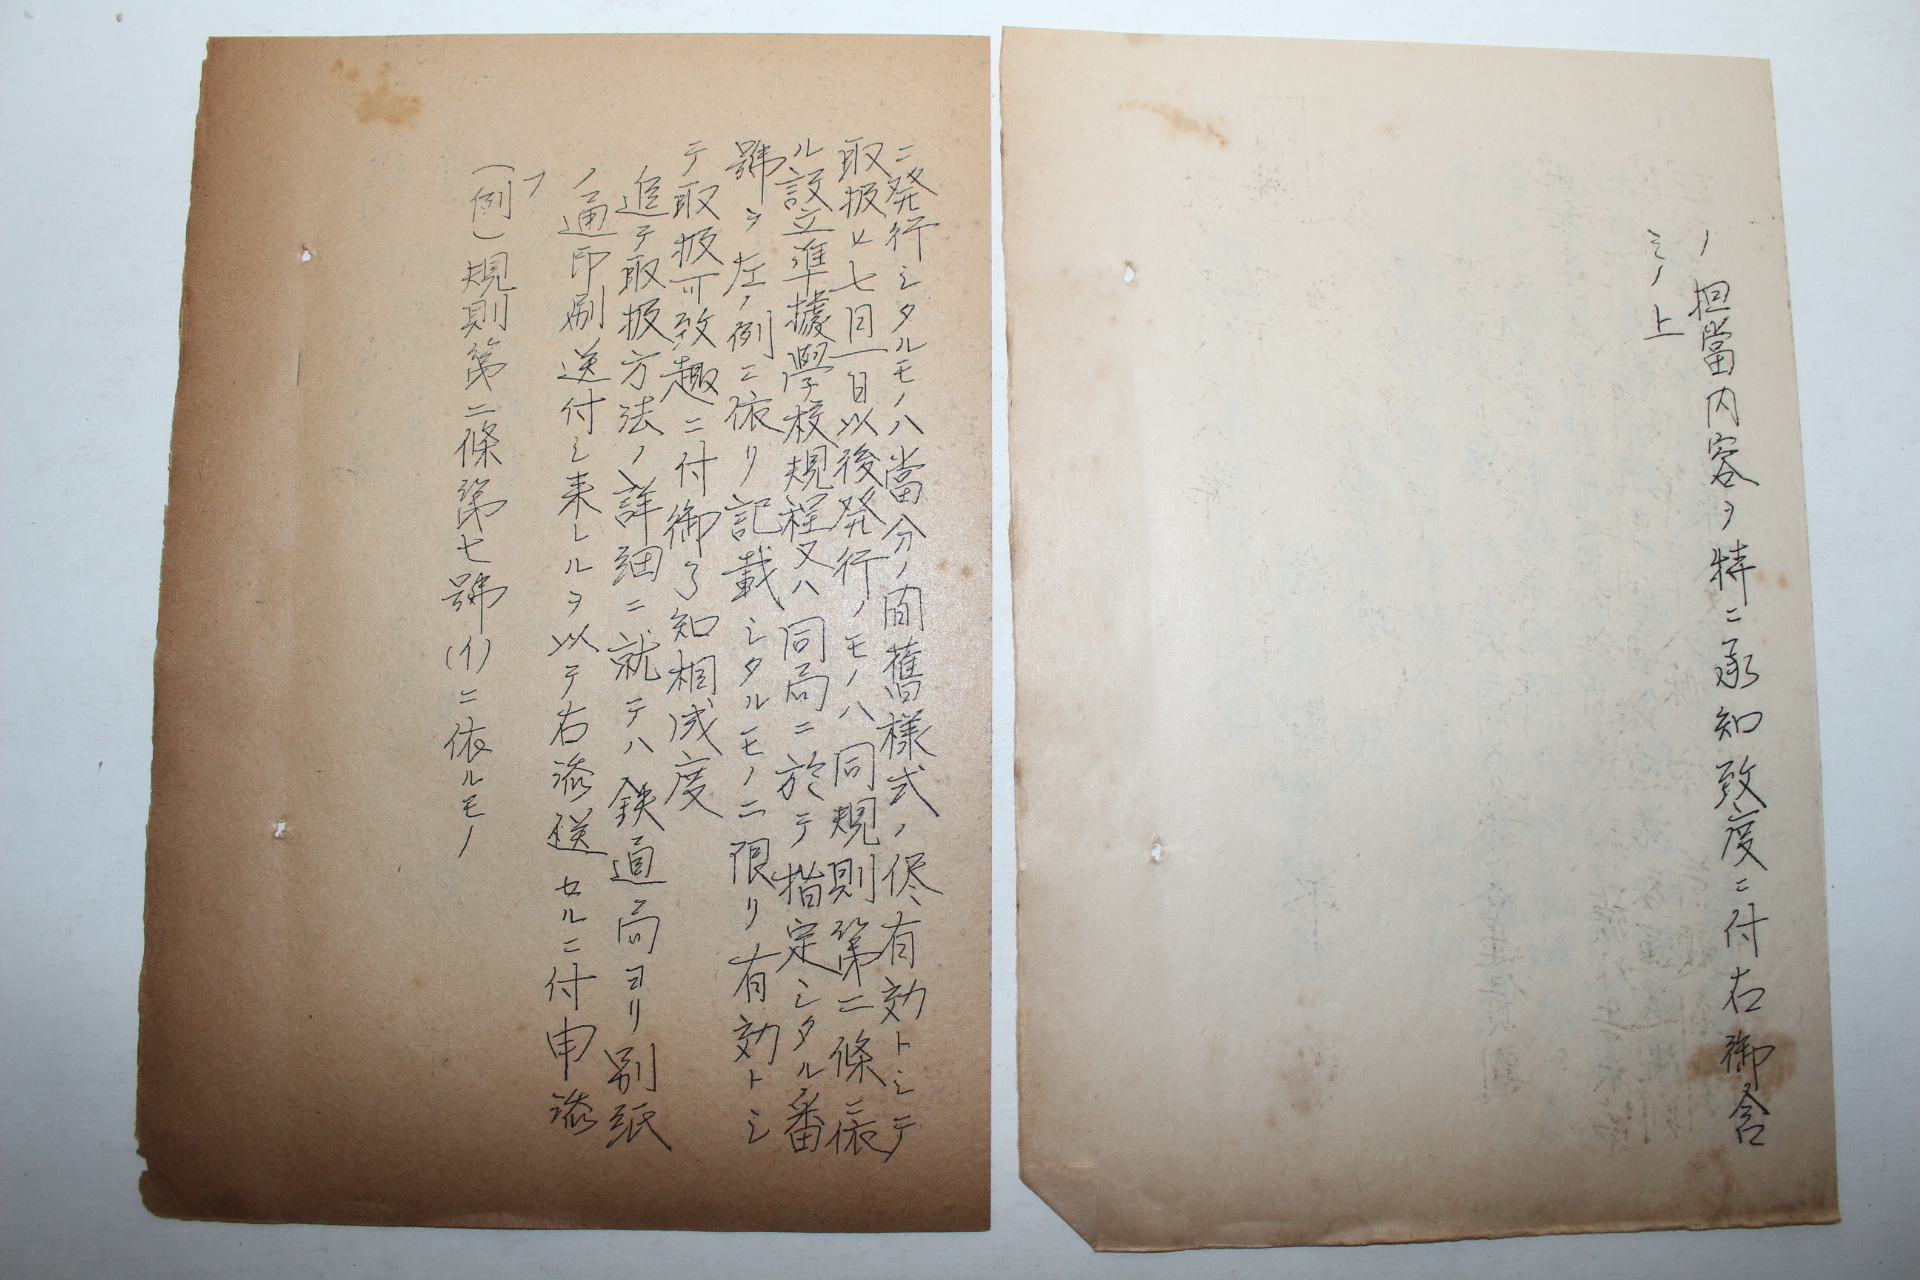 ノ担當内容ヲ特ニ承知致度ニ付右御含
ミノ上
ニ発行シタルモノハ當分ノ間舊様式ノ侭有効トシテ
取扱ヒ七月一日以後発行ノモノハ同規則第二條ニ依
ル設立準據學校規程又ハ同局ニ於テ指定シタル番
號ヲ左ノ例ニ依リ記載シタルモノニ限リ有効トシ
テ取扱可致趣ニ付御了知相成度
追テ取扱方法ノ詳細ニ就テハ鉄道局ヨリ別紙
ノ通印刷送付シ来レルヲ以テ右添送セルニ付申添
フ
(例)規則第二條第七號(イ)ニ依ルモノ